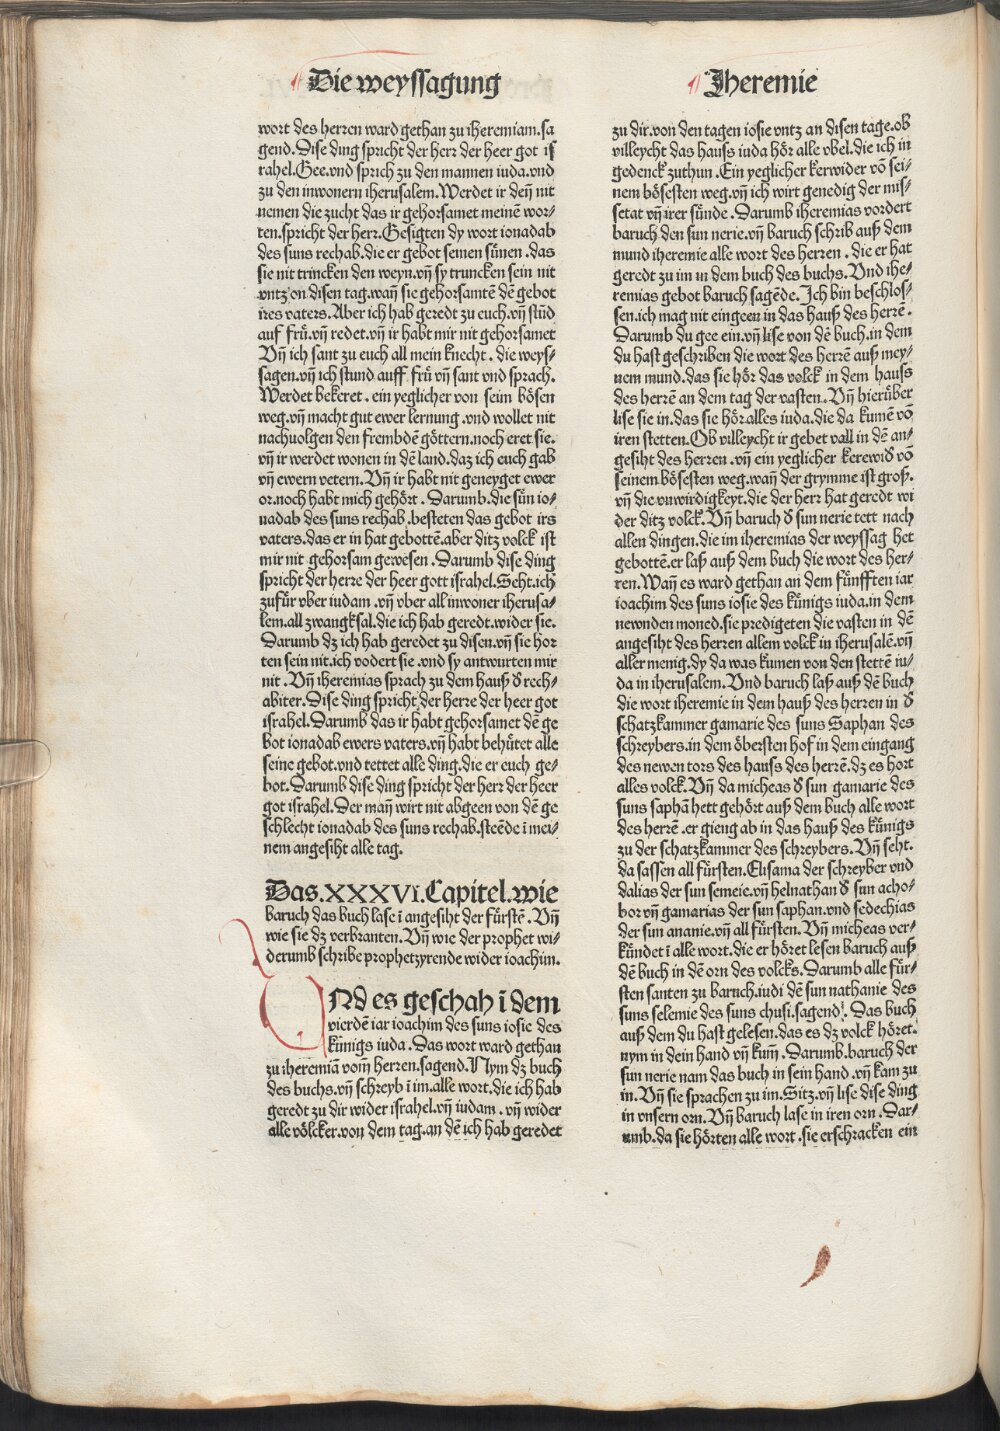 Die weyssagung
Jheremie
wort des herren ward gethan zu iheremiam.sa
gend.Dise ding spricht der herr der heer got is
rahel.Gee.vnd sprich zu den mannen iuda.vnd
zu den inwonern iherusalem.Werdet ir deñ nit
nemen die zucht das ir gehorsamet meinē wor⸗
ten.spricht der herr.Gesigten dy wort ionadab
des suns rechab.die er gebot seinen sünen.das
sie nit trincken den weyn.vñ sy truncken sein nit
vntz on disen tag.wañ sie gehorsamtē dē gebot
ires vaters.Aber ich hab geredt zu euch.vñ stūd
auf frü.vñ redet.vñ ir habt mir nit gehorsamet
Vñ ich sant zu euch all mein knecht.die weys⸗
sagen.vñ ich stund auff frü vñ sant vnd sprach.
Werdet bekeret.ein yeglicher von seim bösen
weg.vñ macht gut ewer lernung.vnd wollet nit
nachuolgen den frembdē göttern.noch eret sie.
vñ ir werdet wonen in dē land.daz ich euch gab
vñ ewern vetern.Vñ ir habt nit geneyget ewer
or.noch habt mich gehört.Darumb.die sün io⸗
nadab des suns rechab.besteten das gebot irs
vaters.das er in hat gebottē.aber ditz volck ist
mir nit gehorsam gewesen.Darumb dise ding
spricht der herre der heer gott israhel.Seht.ich
zufür vber iudam.vñ vber all inwoner iherusa⸗
lem.all zwangksal.die ich hab geredt.wider sie.
Darumb dz ich hab geredet zu disen.vñ sie hor
ten sein nit.ich vodert sie.vnd sy antwurten mir
nit.Vñ iheremias sprach zu dem hauß ď rech⸗
abiter.Dise ding spricht der herre der heer got
israhel.Darumb das ir habt gehorsamet dē ge
bot ionadab ewers vaters.vñ habt behütet alle
seine gebot.vnd tettet alle ding.die er euch ge⸗
bot.Darumb dise ding spricht der herr der heer
got israhel.Der mañ wirt nit abgeen von dē ge
schlecht ionadab des suns rechab.steēde ī mei⸗
nem angesiht alle tag.
Das.XXXVI.Capitel.wie
baruch das buch lase ī angesiht der fürstē.Vñ
wie sie dz verbranten.Vñ wie der prophet wi⸗
derumb schribe prophetzyrende wider ioachim.
VNd es geschah ī dem
vierdē iar ioachim des suns iosie des
künigs iuda.Das wort ward gethan
zu iheremiā vom̄ herren.sagend.Nym dz buch
des buchs.vñ schreyb ī im.alle wort.die ich hab
geredt zu dir wider israhel.vñ iudam.vñ wider
alle völcker.von dem tag.an dē ich hab geredet
zu dir.von den tagen iosie vntz an disen tage.ob
villeycht das hauss iuda hör alle vbel.die ich in
gedenck zuthun.Ein yeglicher kerwider vō sei⸗
nem bösesten weg.vñ ich wirt genedig der mis⸗
setat vñ irer sünde.Darumb iheremias vordert
baruch den sun nerie.vñ baruch schrib auß dem
mund iheremie alle wort des herren.die er hat
geredt zu im in dem buch des buchs.Vnd ihe⸗
remias gebot baruch sagēde.Ich bin beschlos⸗
sen.ich mag nit eingeen in das hauß des herrē.
Darumb du gee ein.vñ lise von dē buch.in dem
du hast geschriben die wort des herrē auß mey⸗
nem mund.das sie hör das volck in dem hauss
des herrē an dem tag der vasten.Vñ hierüber
lise sie in.das sie hör alles iuda.die da kumē vō
iren stetten.Ob villeycht ir gebet vall in dē an⸗
gesiht des herren.vñ ein yeglicher kerewiď vō
seinem bösesten weg.wañ der grymme ist groß.
vñ die vnwirdigkeyt.die der herr hat geredt wi
der ditz volck.Vñ baruch ď sun nerie tett nach
allen dingen.die im iheremias der weyssag het
gebottē.er laß auß dem buch die wort des her⸗
ren.Wañ es ward gethan an dem fünfften iar
ioachim des suns iosie des künigs iuda.in dem
newnden moned.sie predigeten die vasten in dē
angesiht des herren allem volck in iherusalē.vñ
aller menig.dy da was kumen von den stettē iu⸗
da in iherusalem.Vnd baruch laß auß dē buch
die wort iheremie in dem hauß des herren in ď
schatzkammer gamarie des suns Saphan des
schreybers.in dem öbersten hof in dem eingang
des newen tors des hauss des herrē.dz es hort
alles volck.Vñ da micheas ď sun gamarie des
suns saphā hett gehört auß dem buch alle wort
des herrē.er gieng ab in das hauß des künigs
zu der schatzkammer des schreybers.Vñ seht.
da sassen all fürsten.Elisama der schreyber vnd
dalias der sun semeie.vñ helnathan ď sun acho⸗
bor vñ gamarias der sun saphan.vnd sedechias
der sun ananie.vñ all fürsten.Vñ micheas ver⸗
kündet ī alle wort.die er höret lesen baruch auß
dē buch in dē orn des volcks.Darumb alle für⸗
sten santen zu baruch.iudi dē sun nathanie des
suns selemie des suns chusi.sagend.Das buch
auß dem du hast gelesen.das es dz volck höret.
nym in dein hand vñ kum̄.Darumb.baruch der
sun nerie nam das buch in sein hand.vñ kam zu
in.Vñ sie sprachen zu im.Sitz.vñ lise dise ding
in vnsern orn.Vñ baruch lase in iren orn.Dar⸗
umb.da sie hörten alle wort.sie erschracken ein